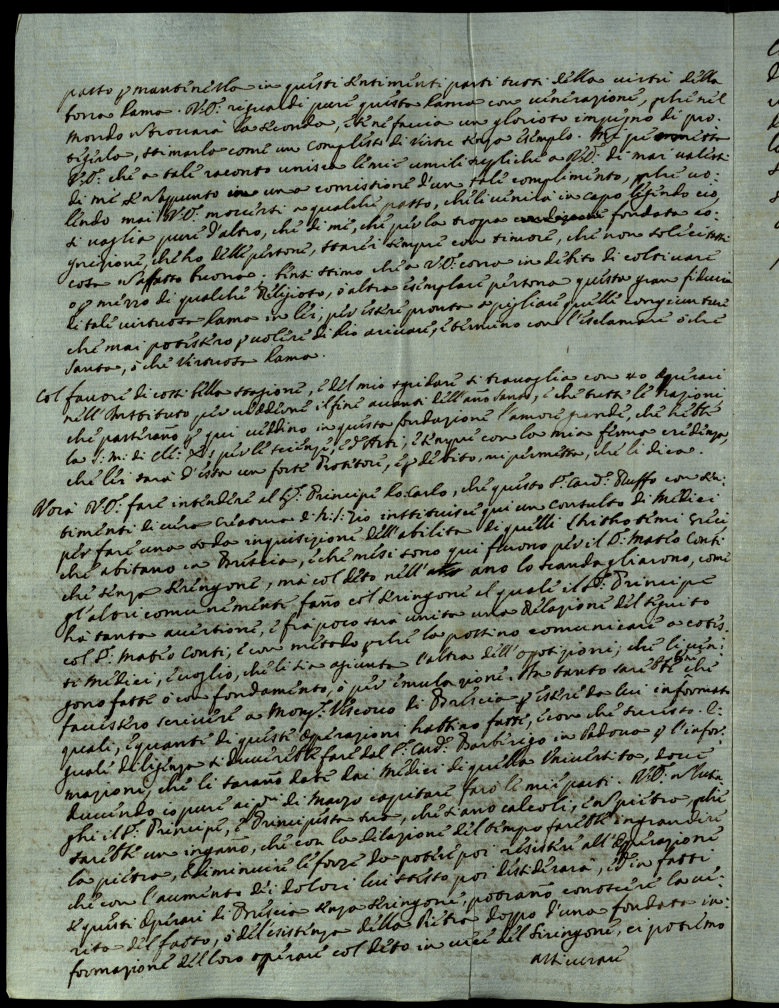 patto p mantenerla in questi sentimenti parti tutti della virtù della
buona Dama. V.S. riguardi pure questa Dama con venerazione, perche nel
Mondo non trovarà la seconda, e se ne faccia un glorioso impegno di pro-
tegerla, stimarla come un Complesso di virtù senza esempio. Mi permetta
V.S. che a tale racconto unisca le mie umili supliche a V.S. di mai valersi
di me se non appunto in una comissione d'un tale complimento, perche vo-
lendo mai V.S. moverti a qualche passo, che li venira in capo legendo ciò,
si vaglia pure d'altro, che di me, che per la troppa fondata co-
gnizione, che ho delle persone, starei sempre con timore, che non solecitassi
cosa non affatto buona. Però stimo che a V.S. corra in debito di coltivare
o p mezzo di qualche Religioso, o altra esemplare persona questa gran fiducia
di tale virtuosa Dama in lei, per essere pronta a pigliare quelle congiunture
che mai potessero p volere di Dio arrivare, e termino con l'esclamare o che
Santa, o che virtuosa Dama.
Col favore di così bella stagione, e del mio sgridare si travaglia con 40 operari
nell'Instituto, per vederne il fine avanti dell'anno Santo, e che tutte le nazioni
che passeranno p qui vedino in questa fondazione l'amore grande, che hebbe
la S: M: di Cle: XI per le scienze, ed Arti, e sempre con la mia ferma credenza,
che lei sarà d'essa un forte Protettore, e p debito, mi permetta, che li dica.
Vorà V.S. fare intendere al Sr. Principe D. Carlo, che questo Sr. Card. Ruffo con sen-
timenti di vera Creatura di instituisce qui un Consulto di Medici
per fare una soda inquisizione dell'abilità di quelli Greci
che abitano a Brescia, e che mesi sono qui furono per il Sr. Matteo Conti
che senza Seringone, ma col deto nell' ano lo scandagliarono, come
gl'altri comunemente fano col Seringone al quale il Sr. Principe
ha tanta avertione, e frà poco sarà unita una Relazione del seguito
col Sr. Matteo Conti, e con metodo, perche la possino comunicare a cotes-
ti Medici, e voglio, che li sia agiunta l'altra dell'oposizioni, che li ven-
gono fatte o con fondamento, o per emulazione. In tanto sarebbe bene che
facessero scrivere a Mons. Vescovo di Brescia p essere da lui informato
quali, e quante di queste operazioni habbino fatte, e con che sucesso. E-
guale diligenza si doverebbe fare dal Sr. Card. Barberigo in Padova p l'infor-
mazione, che li sarano date dai Medici di quella Università, dove
ducendo io pure ai primi di Marzo capitare farò le mie parti. V.S. non lusin-
ghi il Sr. Principe, e Principessa sua, che siano calcoli, e non pietra, perche
sarebbe un ingano, che con la dilazione del tempo farebbe ingrandire
la pietra, e diminuire le forze da potere poi resistere all'operazione
che con l'aumento dei dolori lui stesso poi desiderarà, ed in fatti
se questi operari di Brescia senza Seringone, potrano conoscere la ve-
rità del fatto, o dell'esistenza della Pietra doppo d'una fondata in-
formazione del loro operare col deto in vece del Seringone, ci potremo
assicurare